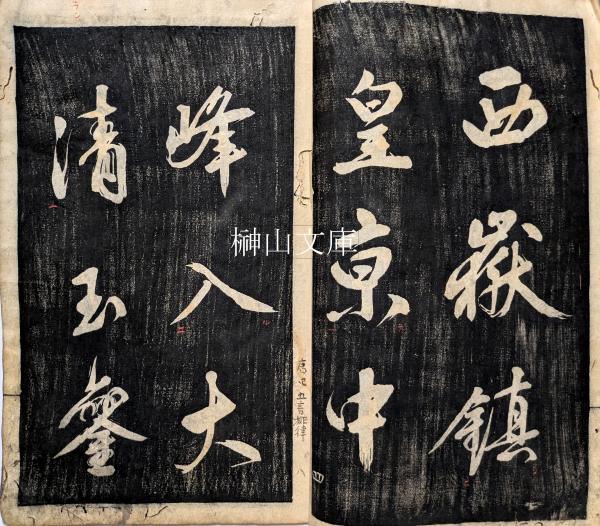 西嶽鎮
皇京中
峰入大
清玉鑾
榊山文庫
五言排律
八
四